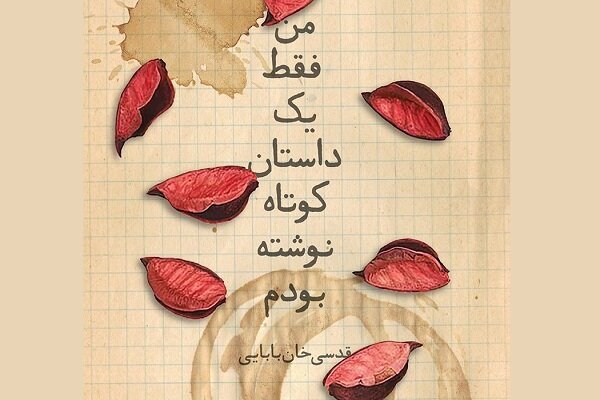 من
فقط
یک
داستان
کوتاه
نوشته
بودم
قدسی‌خان‌بابایی